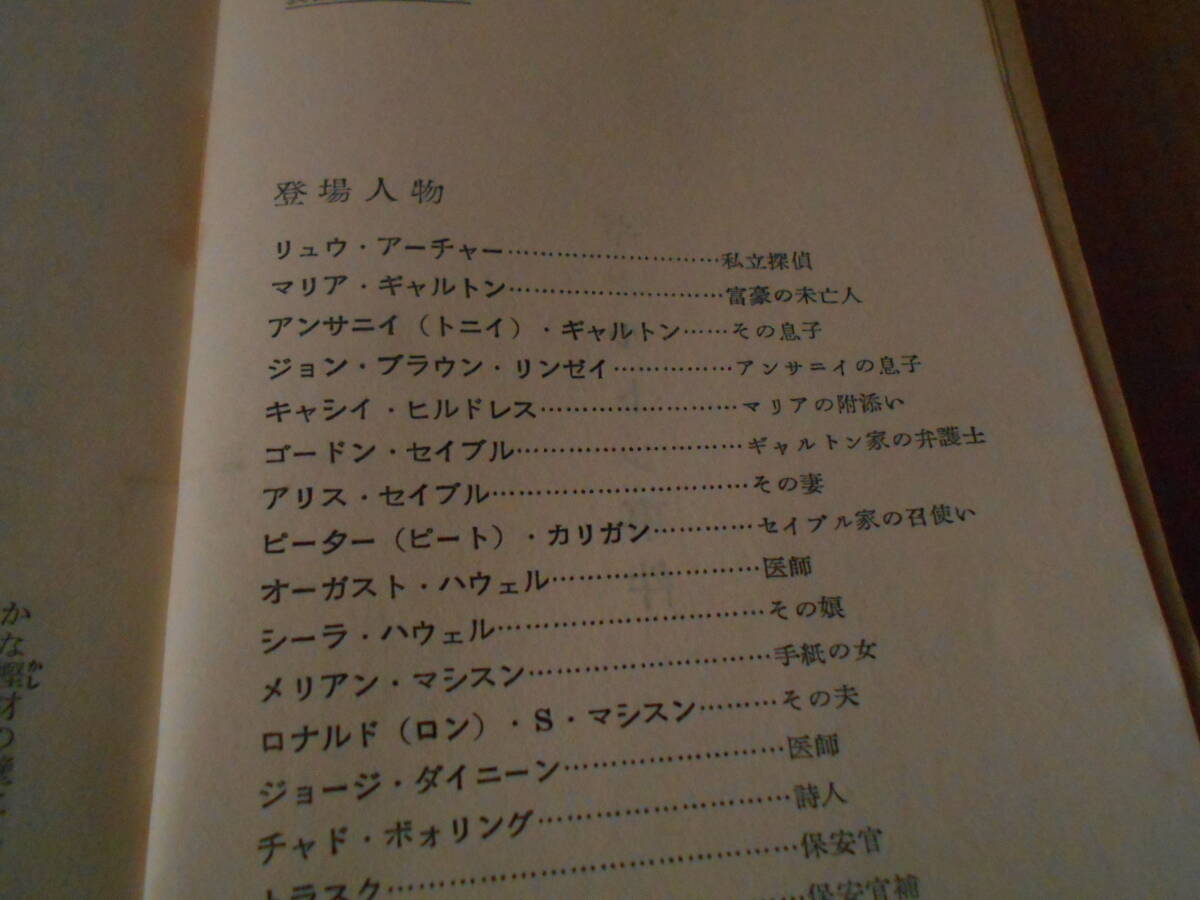 登場人物
リュウ・アーチャー…………………………私立探偵
マリア・ギャルトン…………………………富豪の未亡人
アンサニイ（トニイ）・ギャルトン……その息子
ジョン・ブラウン・リンゼイ……………アンサニイの息子
キャシイ・ヒルドレス………………………マリアの附添い
ゴードン・セイブル…………………………ギャルトン家の弁護士
アリス・セイブル……………………………その妻
ピーター（ピート）・カリガン…………セイブル家の召使い
オーガスト・ハウェル………………………医師
シーラ・ハウェル……………………………その娘
メリアン・マシスン…………………………手紙の女
ロナルド（ロン）・S・マシスン………その夫
ジョージ・ダイニーン………………………医師
チャド・ボォリング…………………………詩人
トラスク………………………………………保安官
……保安官補
かな樫オの
かし